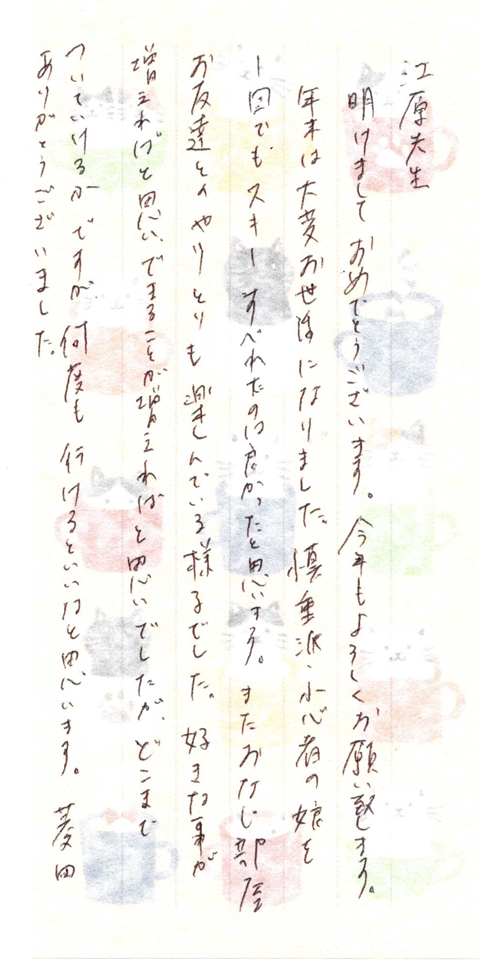 江原先生
明けましておめでとうございます。今年もよろしくお願い致します。
年末は大変お世話になりました。慎重派・小心者の娘を
1回でもスキーすべれたのは良かったと思います。またおなじ部屋
お友達とのやりとりも楽しんでいる様子でした。好きな事が
増えればと思い、できることが増えればと思いでしたが、どこまで
ついていけるかですが何度も行けるといいなと思います。菱田
ありがとうございました。